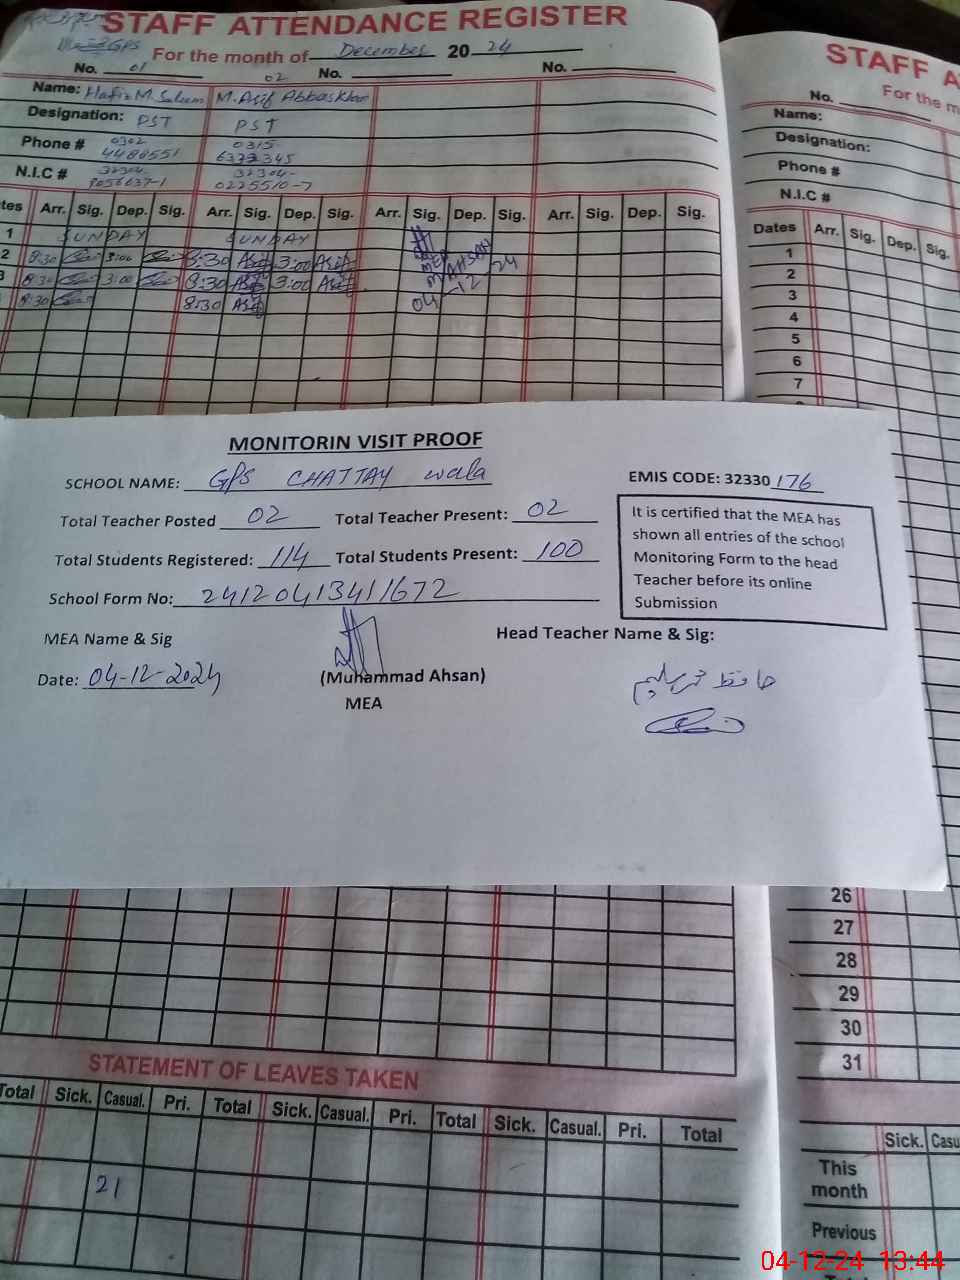 STAFF ATTENDANCE REGISTER
GPS
For the month of December 2024
No. 01 02 No. No.
Name: Hafiz M. Saleem M. Asif Abbas Khan
Designation: PST PST
Phone # 0302 4488551 0315
N.I.C # 32304- 32304-
0225510-7
Dates Arr. Sig. Dep. Sig. Arr. Sig. Dep. Sig. Arr. Sig. Dep. Sig. Arr. Sig. Dep. Sig.
1 SUNDAY SUNDAY
2 8:30 3:00 8:30 Asif 3:00 Asif
3 8:30 3:00 8:30 Asif 3:00 Asif
8:30 8:30 Asif
MEA
M AHSAN
04-12-24
STAFF A
No.
For the m
Name:
Designation:
Phone #
N.I.C #
Dates Arr. Sig. Dep. Sig.
1
2
3
4
5
6
7
MONITORIN VISIT PROOF
SCHOOL NAME: GPS CHATTAY wala EMIS CODE: 32330 176
Total Teacher Posted 02 Total Teacher Present: 02
Total Students Registered: 114 Total Students Present: 100
School Form No: 24120413411672
It is certified that the MEA has
shown all entries of the school
Monitoring Form to the head
Teacher before its online
Submission
MEA Name & Sig Head Teacher Name & Sig:
Date: 04-12-2024 (Muhammad Ahsan)
MEA
حافظ محمد سلیم
26
27
28
29
30
31
STATEMENT OF LEAVES TAKEN
Total Sick. Casual. Pri. Total Sick. Casual. Pri. Total Sick. Casual. Pri. Total
21
Sick. Casu
This
month
Previous
04-12-24 13:44